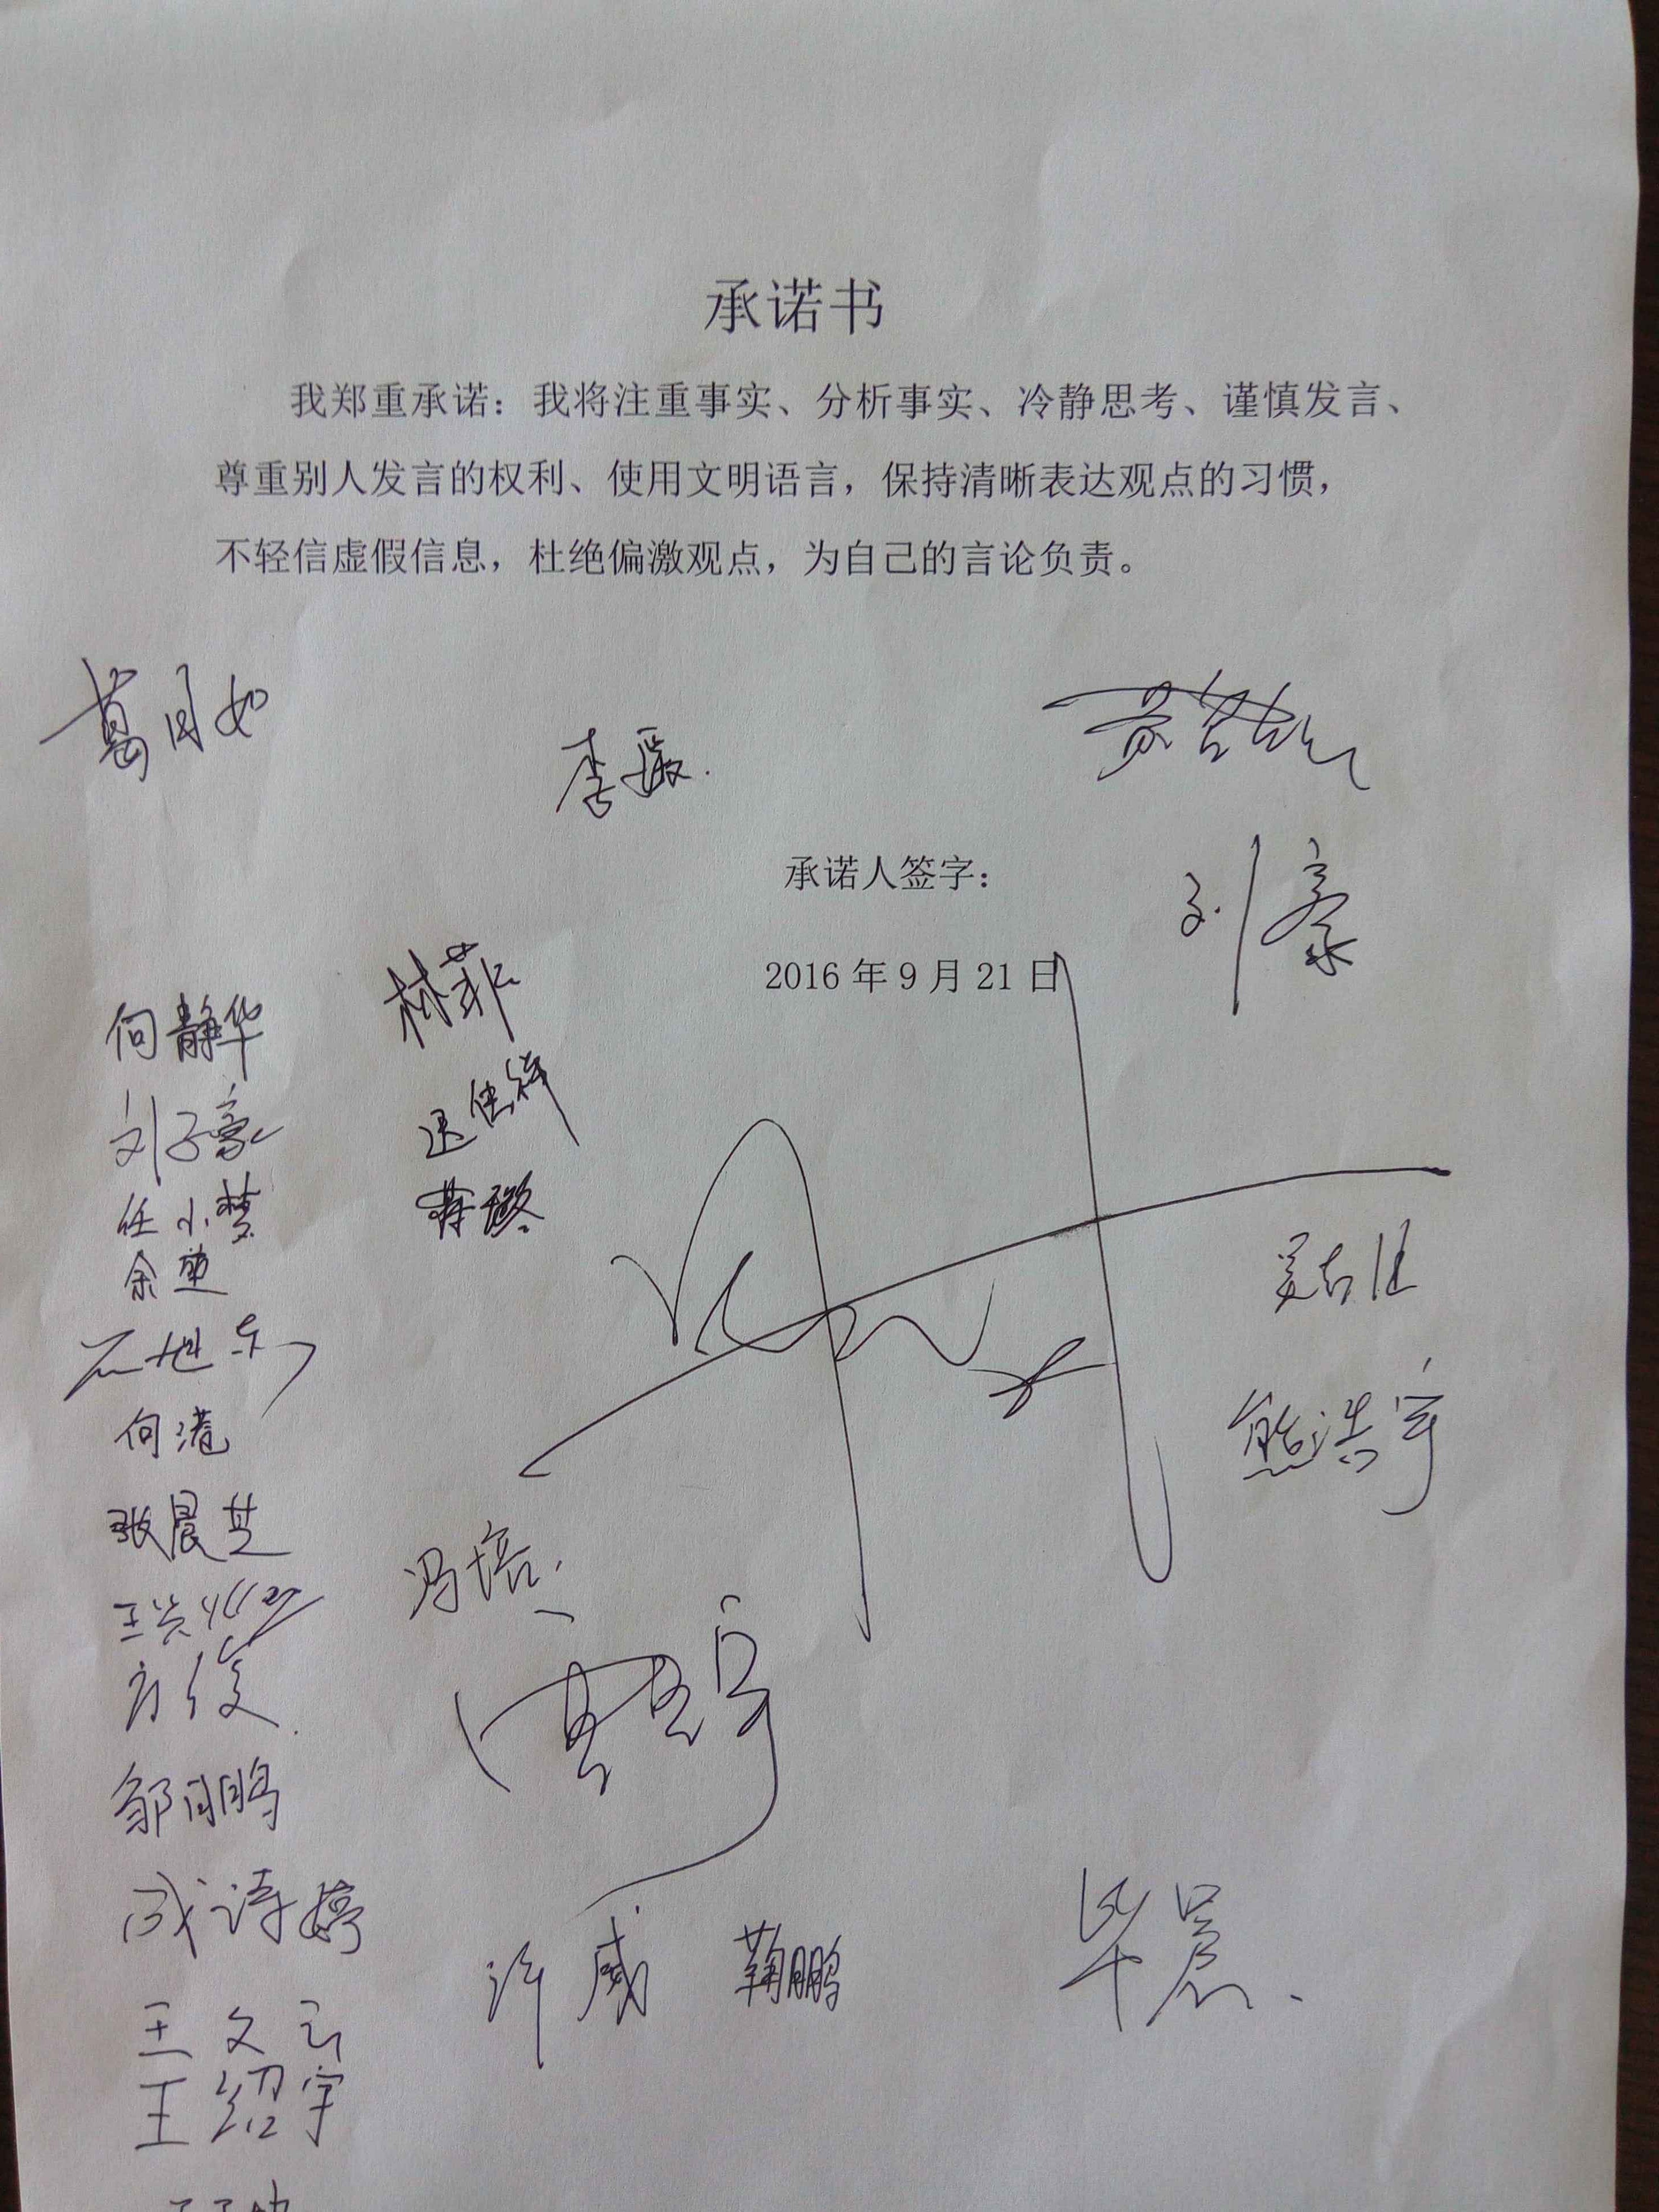 承诺书
我郑重承诺：我将注重事实、分析事实、冷静思考、谨慎发言、
尊重别人发言的权利、使用文明语言，保持清晰表达观点的习惯，
不轻信虚假信息，杜绝偏激观点，为自己的言论负责。
葛月如
李媛
承诺人签字：
刘豪
2016 年 9 月 21 日
林菲
何静华
刘子豪
任小梦
余堃
何港
张晨芝
冯培
熊浩宇
方俊
邹月鹏
成诗婷
许威 鞠鹏
毕晨
王文云
王绍宇